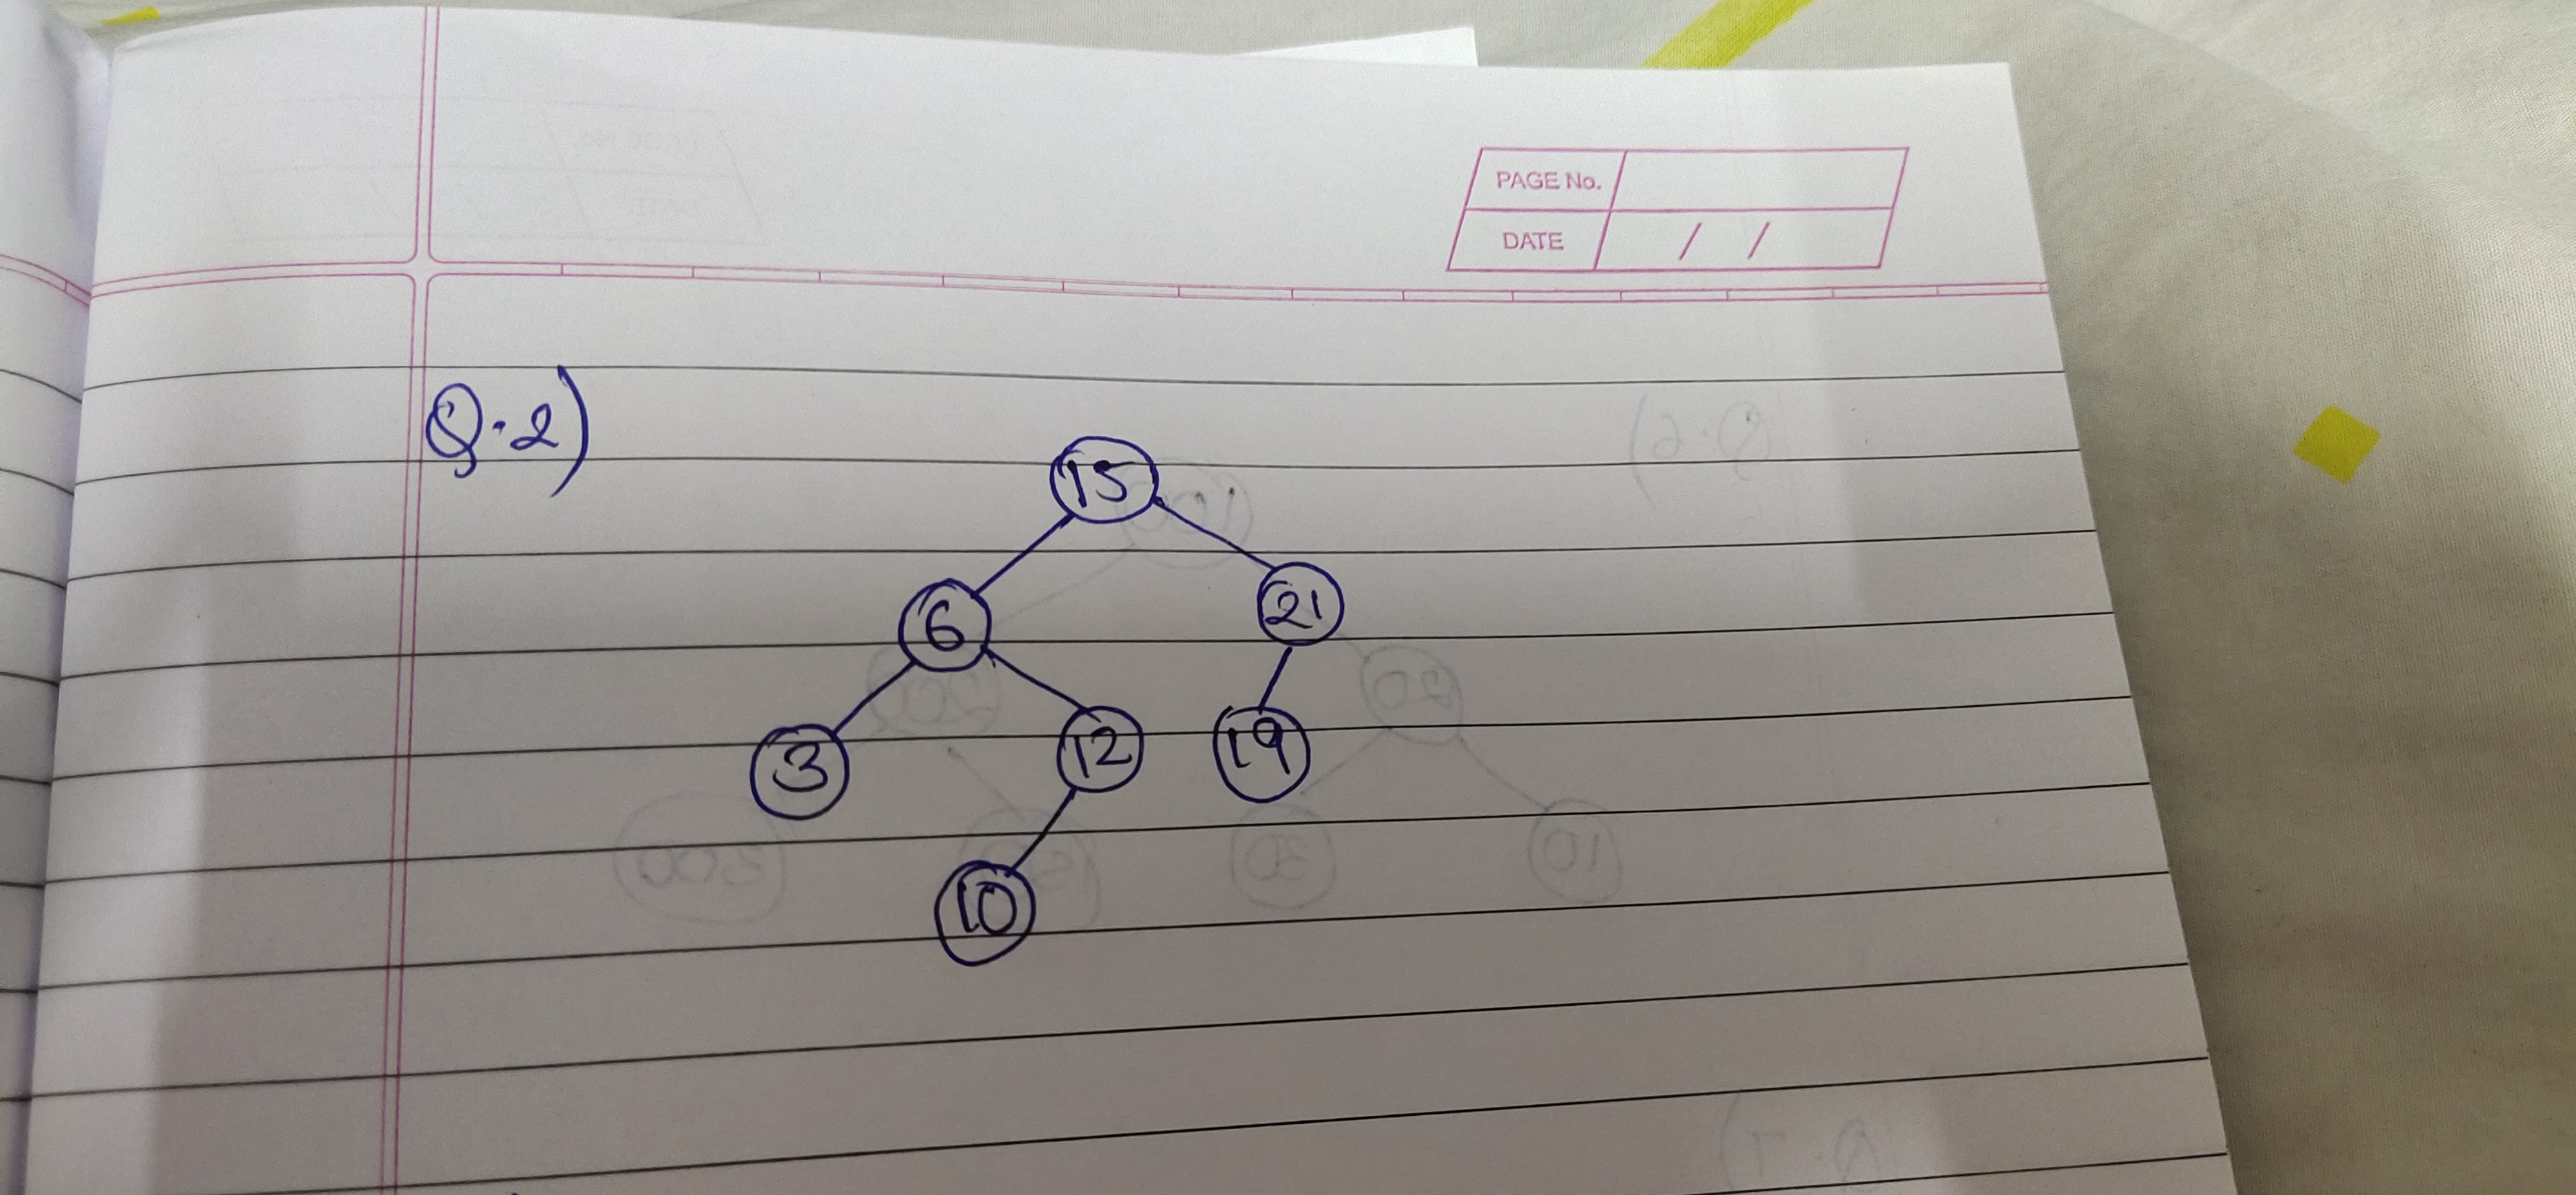 PAGE No.
DATE / /
Q.2)
15
6 21
3 12 19
10